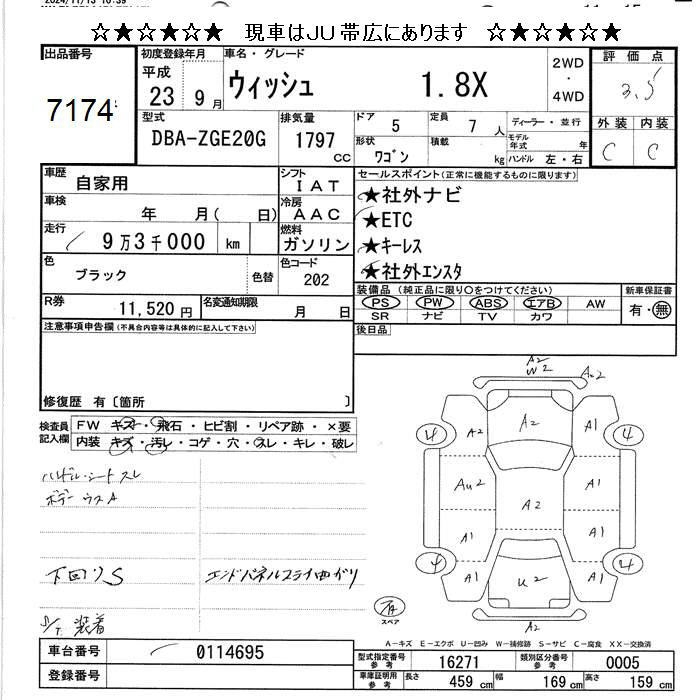 ☆★☆★☆★ 現車はJU帯広にあります ☆★☆★☆★
出品番号
7174
初度登録年月
平成 23年 9月
車名・グレード
ウィッシュ 1.8X
2WD
・
4WD
評価点
3.5
外装 内装
C C
型式
DBA-ZGE20G
排気量
1797 cc
ドア 5
定員 7 人
形状 ワゴン
積載 kg
ディーラー・並行
モデル年式 年
ハンドル 左・右
車歴
自家用
シフト
IAT
車検
年 月( 日)
冷房
AAC
走行
9万3千000 km
燃料
ガソリン
色
ブラック
色替
色コード
202
R券
11,520円
名変通知期限
月 日
セールスポイント(正常に機能するものに限ります)
★社外ナビ
★ETC
★キーレス
★社外エンスタ
装備品(純正品に限り○をつけてください)
PS PW ABS エアB AW
SR ナビ TV カワ
新車保証書
有・無
後日品
注意事項申告欄(不具合内容等は具体的に記入して下さい)
修復歴 有〔箇所 〕
検査員記入欄
FW キズ・飛石・ヒビ割・リペア跡・×要
内装 キズ・汚レ・コゲ・穴・スレ・キレ・破レ
ハンドル・シートスレ
ボデーウスA
下回りS
エンドパネルスライ曲がり
S/T 装着
A2
W2
A2
4 A2 A2 A1 4
Au2 A1
A2
A1 A1
4 A1 U2 A1 4
A2
スペア
A-キズ E-エクボ U-凹み W-補修跡 S-サビ C-腐食 XX-交換済
車台番号
0114695
登録番号
型式指定番号 参考
16271
類別区分番号 参考
0005
車庫証明用 参考
長さ 459 cm
幅 169 cm
高さ 159 cm